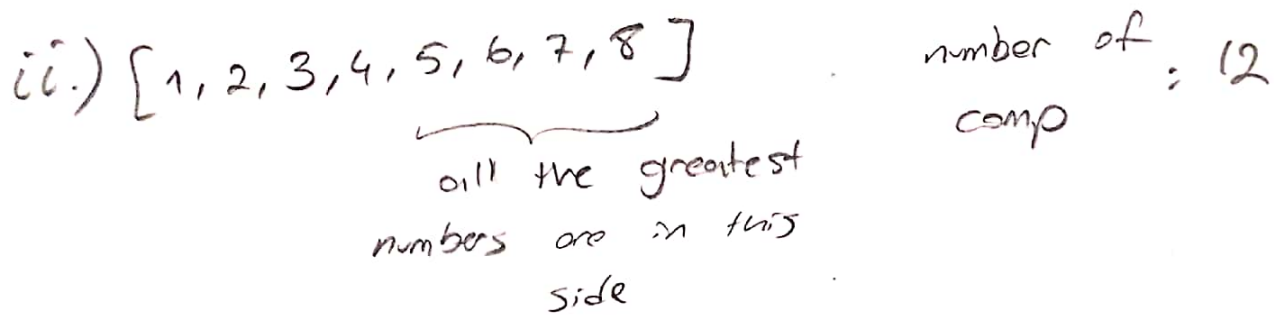 ii.) [1, 2, 3, 4, 5, 6, 7, 8] number of : 12
comp
all the greatest
numbers are in this
side